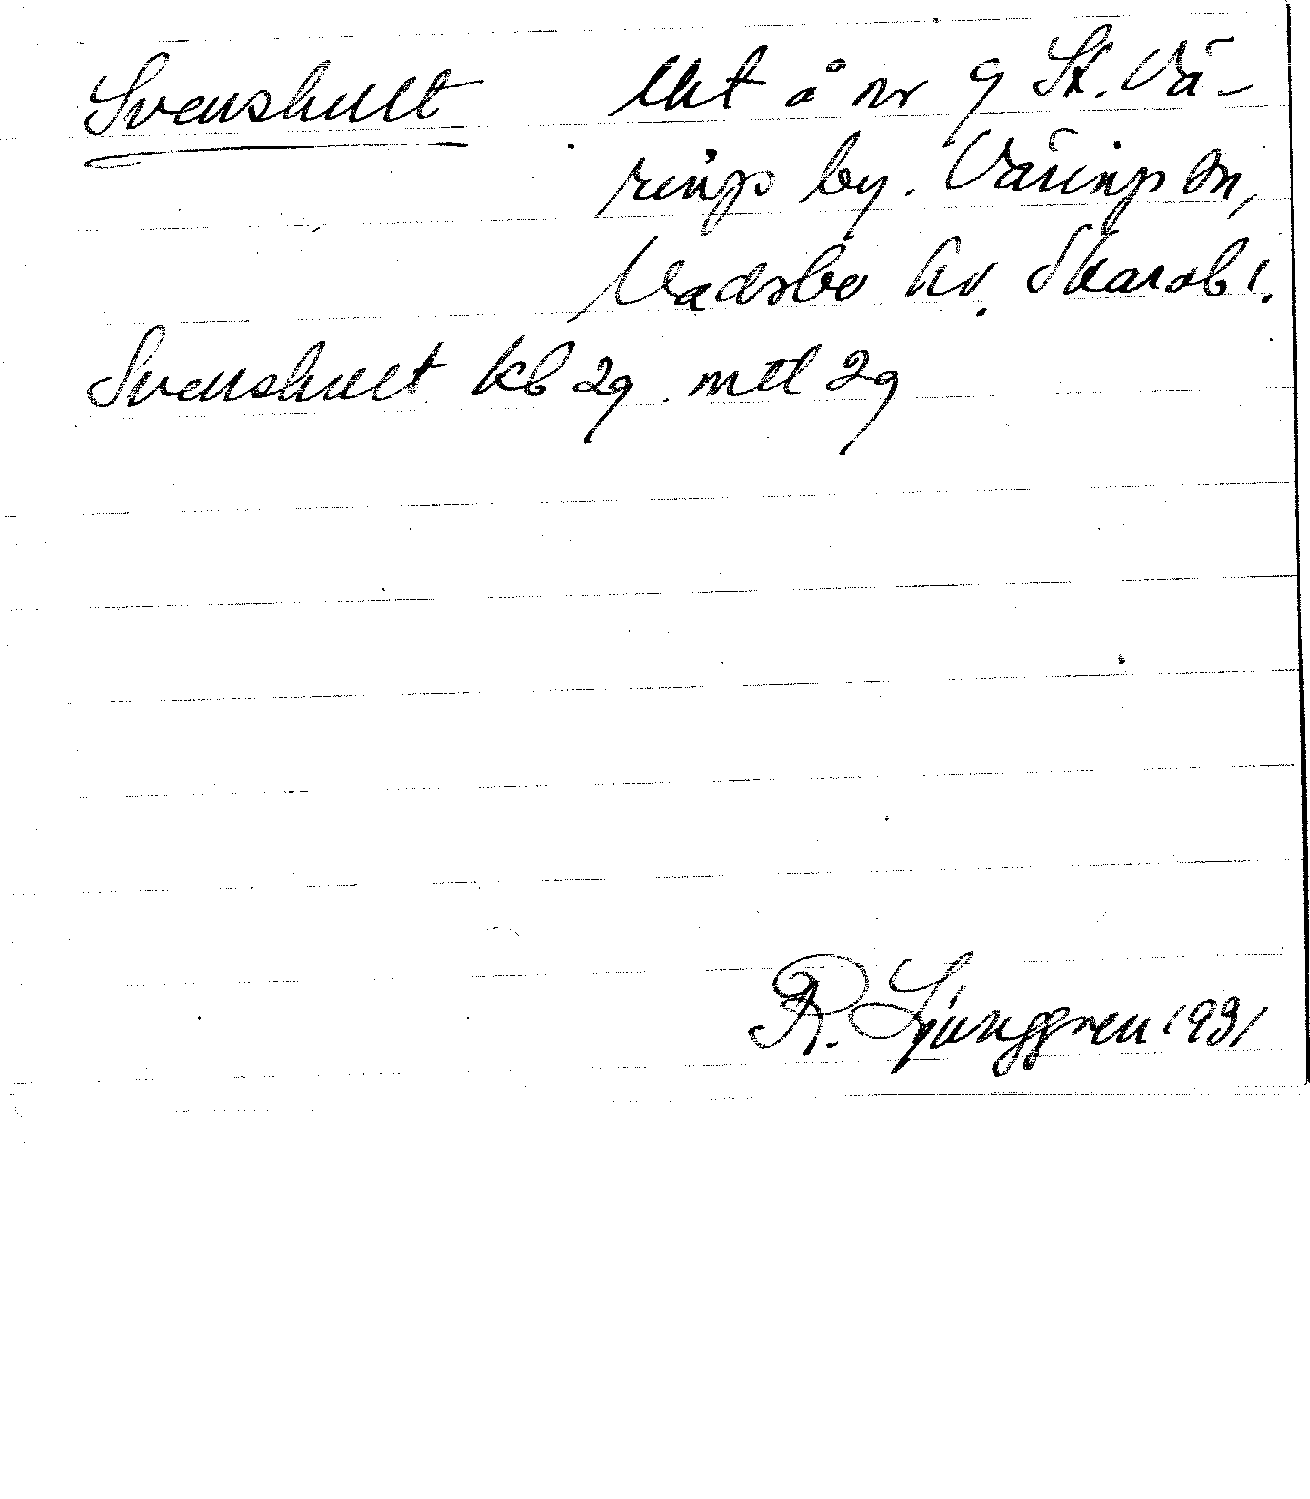 Svenshult lht å nr 9 St. Vä-
rings by. Värings sn,
Vadsbo hd. Skarab l.
Svenshult kb 29. mtl 29
R. Ljunggren 1931